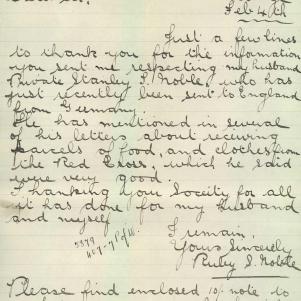 Feb 4th
Just a few lines
to thank you for the information
you sent me respecting my husband
Private Stanley S. Noble, who has
just recently been sent to England
from Germany.
He has mentioned in several
of his letters about receiving
parcels of food, and clothes from
the Red Cross, which he said
were very good.
Thanking your Soceity for all
it has done for my husband
and myself
I remain,
Yours Sincerely
Ruby S. Noble
Please find enclosed 10/- note to